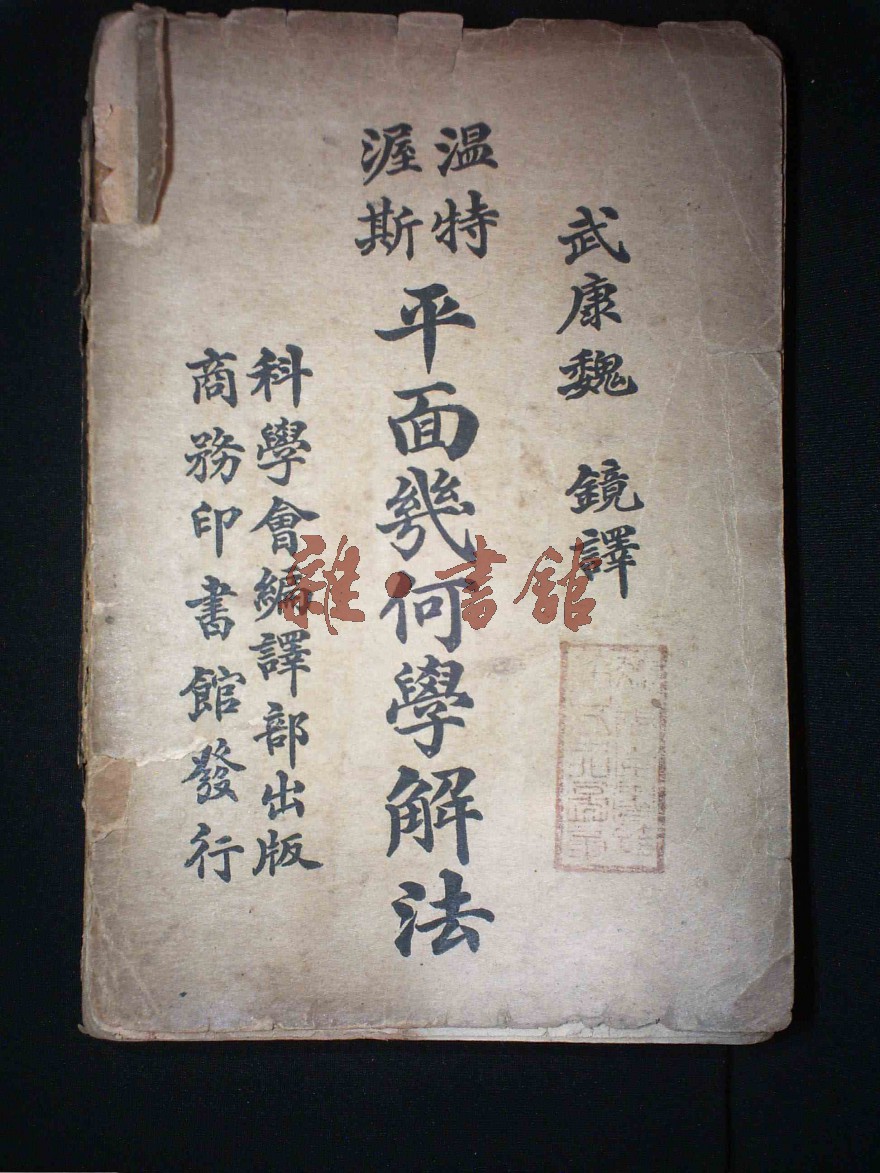 武康魏 鏡譯
温特
渥斯
平面幾何學解法
科學會編譯部出版
商務印書館發行
雜·書館